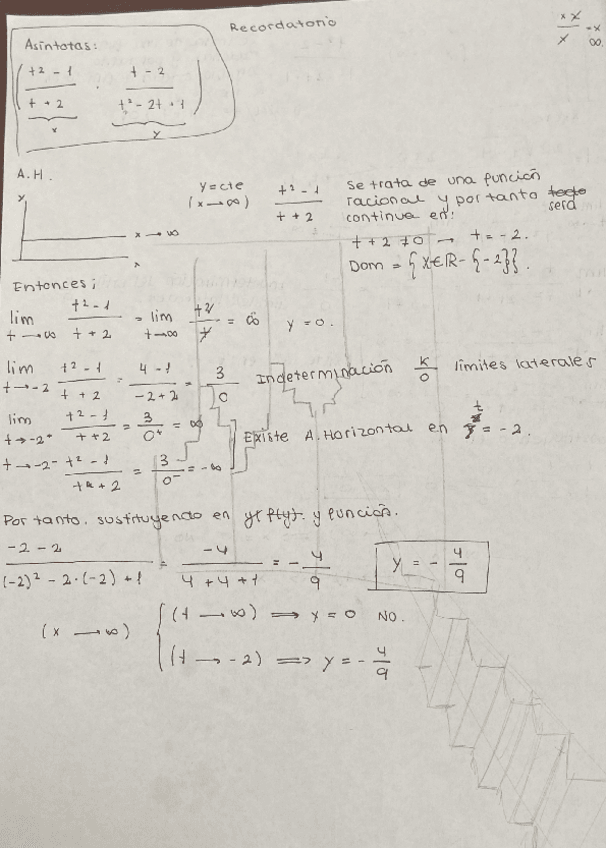 Recordatorio
xx/x -x ∞.
Asíntotas:
( (t2 - 1)/(t + 2) , (t - 2)/(t² - 2t + 1) )
x y
A.H.
y
x → ∞
x
y = cte
(x → ∞)
(t² - 1)/(t + 2)
se trata de una función
racional y por tanto será
continua en:
t + 2 ≠ 0 → t = - 2.
Dom = { x ∈ ℝ - {-2}}.
Entonces;
lim t → ∞ (t² - 1)/(t + 2) = lim t → ∞ t2/t = ∞ y = 0.
lim t → -2 (t² - 1)/(t + 2) = (4 - 1)/(-2 + 2) = 3/0 Indeterminación k/0 límites laterales
lim t → -2⁺ (t² - 1)/(t + 2) = 3/0⁺ = ∞
Existe A. Horizontal en t = - 2.
t → -2⁻ (t² - 1)/(t + 2) = 3/0⁻ = -∞
Por tanto, sustituyendo en y función.
(-2 - 2)/((-2)² - 2·(-2) + 1) = -4/(4 + 4 + 1) = - 4/9 y = - 4/9
(x → ∞) { (t → ∞) ⟹ y = 0 NO.
(t → -2) ⟹ y = - 4/9